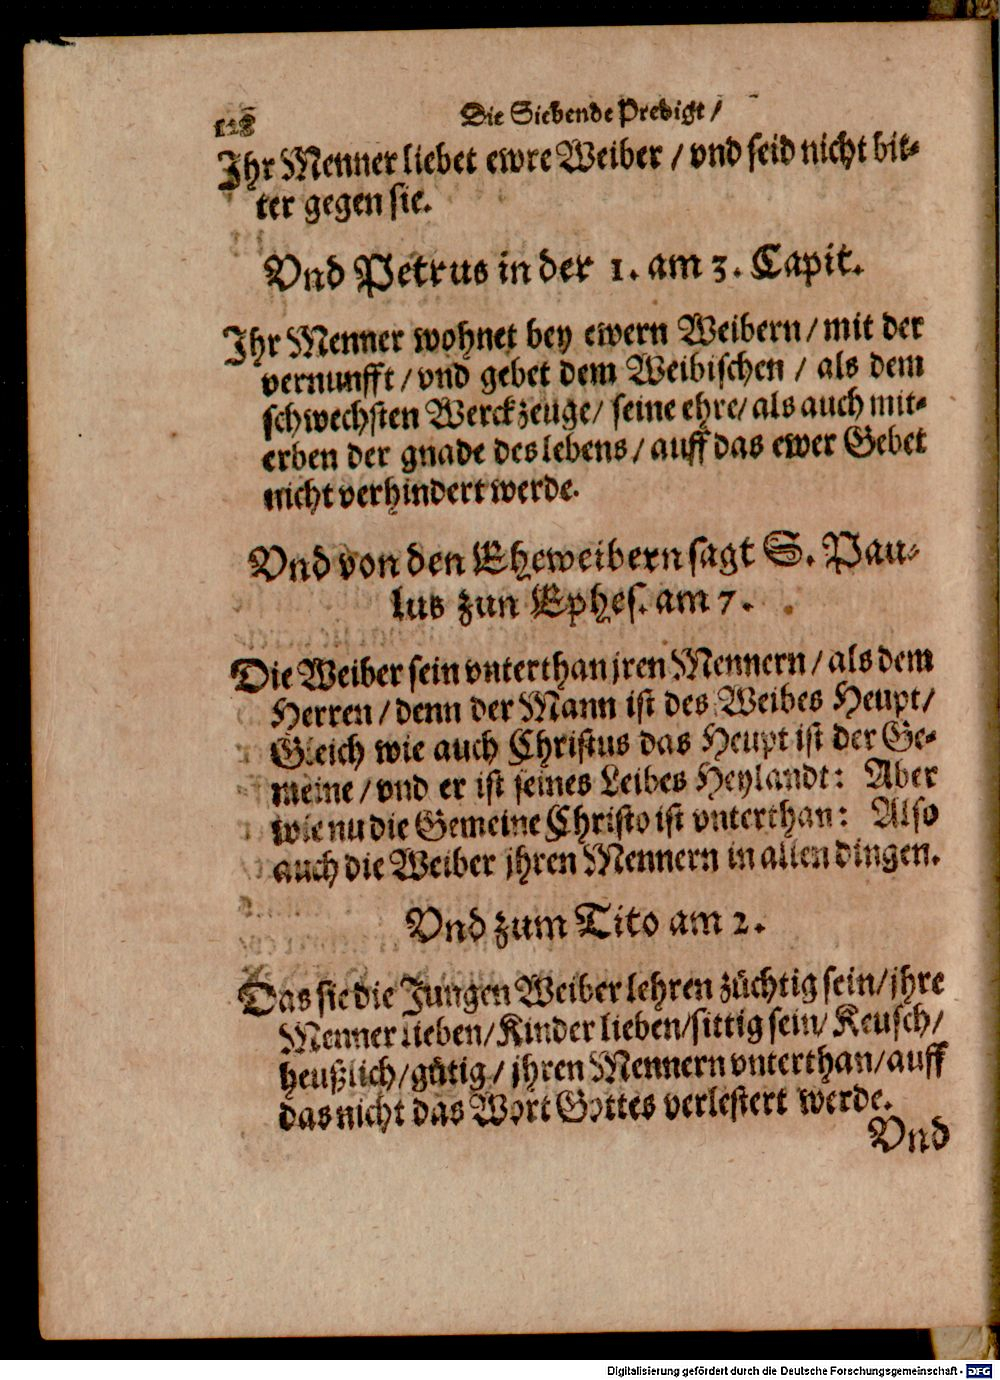 128
Die Siebende Predigt /
Ihr Menner liebet ewre Weiber / vnd seid nicht bit-
ter gegen sie.
Vnd Petrus in der 1. am 3. Capit.
Ihr Menner wohnet bey ewern Weibern / mit der
vernunfft / vnd gebet dem Weibischen / als dem
schwechsten Werckzeuge / seine ehre / als auch mit-
erben der gnade des lebens / auff das ewer Gebet
nicht verhindert werde.
Vnd von den Eheweibern sagt S. Pau-
lus zun Ephes. am 7.
Die Weiber sein vnterthan jren Mennern / als dem
Herren / denn der Mann ist des Weibes Heupt /
Gleich wie auch Christus das Heupt ist der Ge-
meine / vnd er ist seines Leibes Heylandt: Aber
wie nu die Gemeine Christo ist vnterthan: Also
auch die Weiber jhren Mennern in allen dingen.
Vnd zum Tito am 2.
Das sie die Jungen Weiber lehren züchtig sein / jhre
Menner lieben / Kinder lieben / sittig sein / Keusch /
heußlich / gütig / jhren Mennern vnterthan / auff
das nicht das Wort Gottes verlestert werde.
Vnd
Digitalisierung gefördert durch die Deutsche Forschungsgemeinschaft - DFG